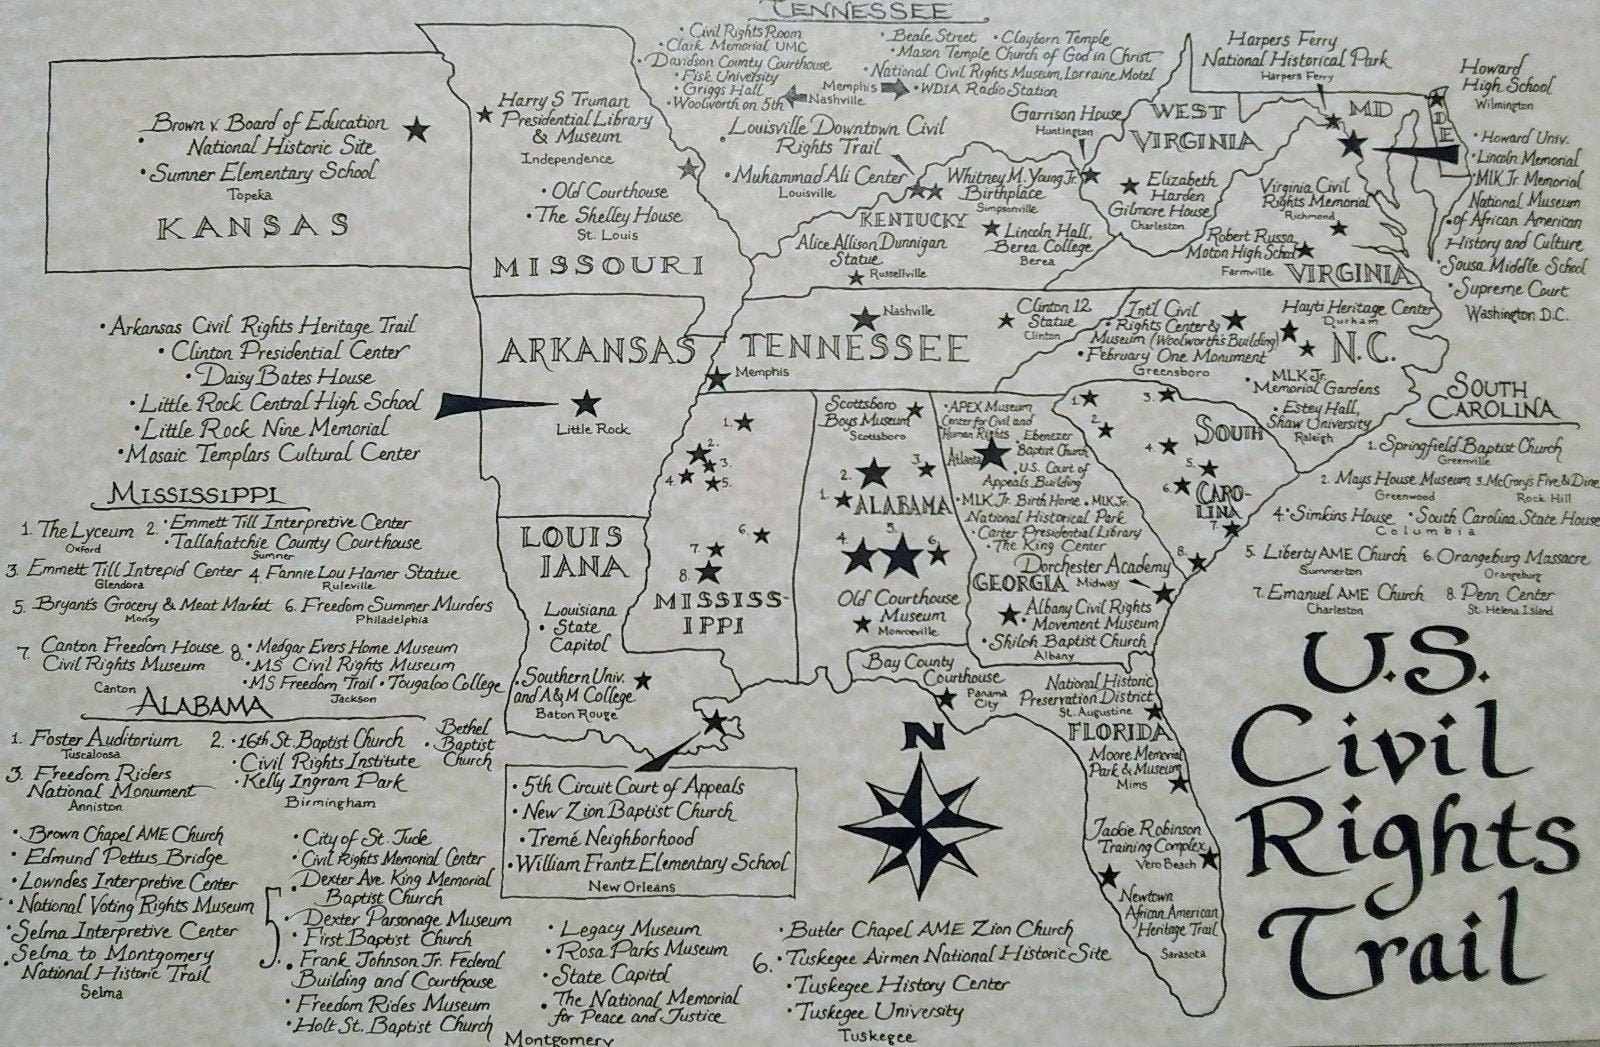 TENNESSEE
• Civil Rights Room
• Clark Memorial UMC
• Davidson County Courthouse
• Fisk University
• Griggs Hall
• Woolworth on 5th
Memphis
Nashville
• Beale Street • Clayborn Temple
• Mason Temple Church of God in Christ
• National Civil Rights Museum, Lorraine Motel
• WDIA Radio Station
Brown v. Board of Education
• National Historic Site
• Sumner Elementary School
Topeka
KANSAS
Harry S Truman
Presidential Library
& Museum
Independence
• Old Courthouse
• The Shelley House
St. Louis
MISSOURI
Louisville Downtown Civil
• Rights Trail
• Muhammad Ali Center
Louisville
Whitney M. Young Jr.
Birthplace
Simpsonville
KENTUCKY
Alice Allison Dunnigan
Statue
Russellville
Lincoln Hall,
Berea College
Berea
Garrison House
Huntington
WEST
VIRGINIA
Elizabeth
Harden
Gilmore House
Charleston
Harpers Ferry
National Historical Park
Harpers Ferry
MD
DE
Howard
High School
Wilmington
Virginia Civil
Rights Memorial
Richmond
Robert Russa
Moton High School
Farmville
VIRGINIA
• Howard Univ.
• Lincoln Memorial
• MLK Jr. Memorial
National Museum
• of African American
History and Culture
• Sousa Middle School
• Supreme Court
Washington D.C.
• Arkansas Civil Rights Heritage Trail
• Clinton Presidential Center
• Daisy Bates House
• Little Rock Central High School
• Little Rock Nine Memorial
• Mosaic Templars Cultural Center
ARKANSAS
Little Rock
TENNESSEE
Nashville
Memphis
Clinton 12
Statue
Clinton
Int'l Civil
• Rights Center &
Museum (Woolworth's Building)
• February One Monument
Greensboro
Hayti Heritage Center
Durham
N.C.
• MLK Jr.
Memorial Gardens
• Estey Hall,
Shaw University
Raleigh
SOUTH
CAROLINA
1. Springfield Baptist Church
Greenville
2. Mays House Museum 3. McCrory's Five & Dime
Greenwood Rock Hill
4. • Simkins House • South Carolina State House
Columbia
5. Liberty AME Church 6. Orangeburg Massacre
Summerton Orangeburg
7. Emanuel AME Church 8. Penn Center
Charleston St. Helena Island
1.
2.
3.
4.
5.
6.
7.
8.
SOUTH
CARO-
LINA
MISSISSIPPI
1. The Lyceum 2. • Emmett Till Interpretive Center
Oxford • Tallahatchie County Courthouse
Sumner
3. Emmett Till Intrepid Center 4. Fannie Lou Hamer Statue
Glendora Ruleville
5. Bryant's Grocery & Meat Market 6. Freedom Summer Murders
Money Philadelphia
7. Canton Freedom House
Civil Rights Museum
Canton
8. • Medgar Evers Home Museum
• MS Civil Rights Museum
• MS Freedom Trail • Tougaloo College
Jackson
1.
2.
3.
4.
5.
6.
7.
8.
MISSISS-
IPPI
LOUIS
IANA
Louisiana
• State
Capitol
• Southern Univ.
and A&M College
Baton Rouge
• 5th Circuit Court of Appeals
• New Zion Baptist Church
• Tremé Neighborhood
• William Frantz Elementary School
New Orleans
Scottsboro
Boys Museum
Scottsboro
2.
3.
1.
ALABAMA
4.
5.
6.
Old Courthouse
Museum
Monroeville
• APEX Museum
Center for Civil and
Human Rights
Atlanta
• Ebenezer
Baptist Church
• U.S. Court of
Appeals Building
• MLK Jr. Birth Home • MLK Jr.
National Historical Park
• Carter Presidential Library
• The King Center
Dorchester Academy
Midway
GEORGIA
• Albany Civil Rights
Movement Museum
• Shiloh Baptist Church
Albany
Bay County
Courthouse
Panama
City
National Historic
Preservation District
St. Augustine
FLORIDA
Moore Memorial
Park & Museum
Mims
Jackie Robinson
Training Complex
Vero Beach
Newtown
African American
Heritage Trail
Sarasota
N
ALABAMA
1. Foster Auditorium
Tuscaloosa
2. • 16th St. Baptist Church
• Civil Rights Institute
• Kelly Ingram Park
Birmingham
Bethel
• Baptist
Church
3. Freedom Riders
National Monument
Anniston
• Brown Chapel AME Church
• Edmund Pettus Bridge
• Lowndes Interpretive Center
• National Voting Rights Museum
• Selma Interpretive Center
Selma to Montgomery
• National Historic Trail
Selma
5.
• City of St. Jude
• Civil Rights Memorial Center
• Dexter Ave. King Memorial
Baptist Church
• Dexter Parsonage Museum
• First Baptist Church
• Frank Johnson Jr. Federal
Building and Courthouse
• Freedom Rides Museum
• Holt St. Baptist Church
• Legacy Museum
• Rosa Parks Museum
• State Capitol
• The National Memorial
for Peace and Justice
Montgomery
6.
• Butler Chapel AME Zion Church
• Tuskegee Airmen National Historic Site
• Tuskegee History Center
• Tuskegee University
Tuskegee
U.S.
Civil
Rights
Trail